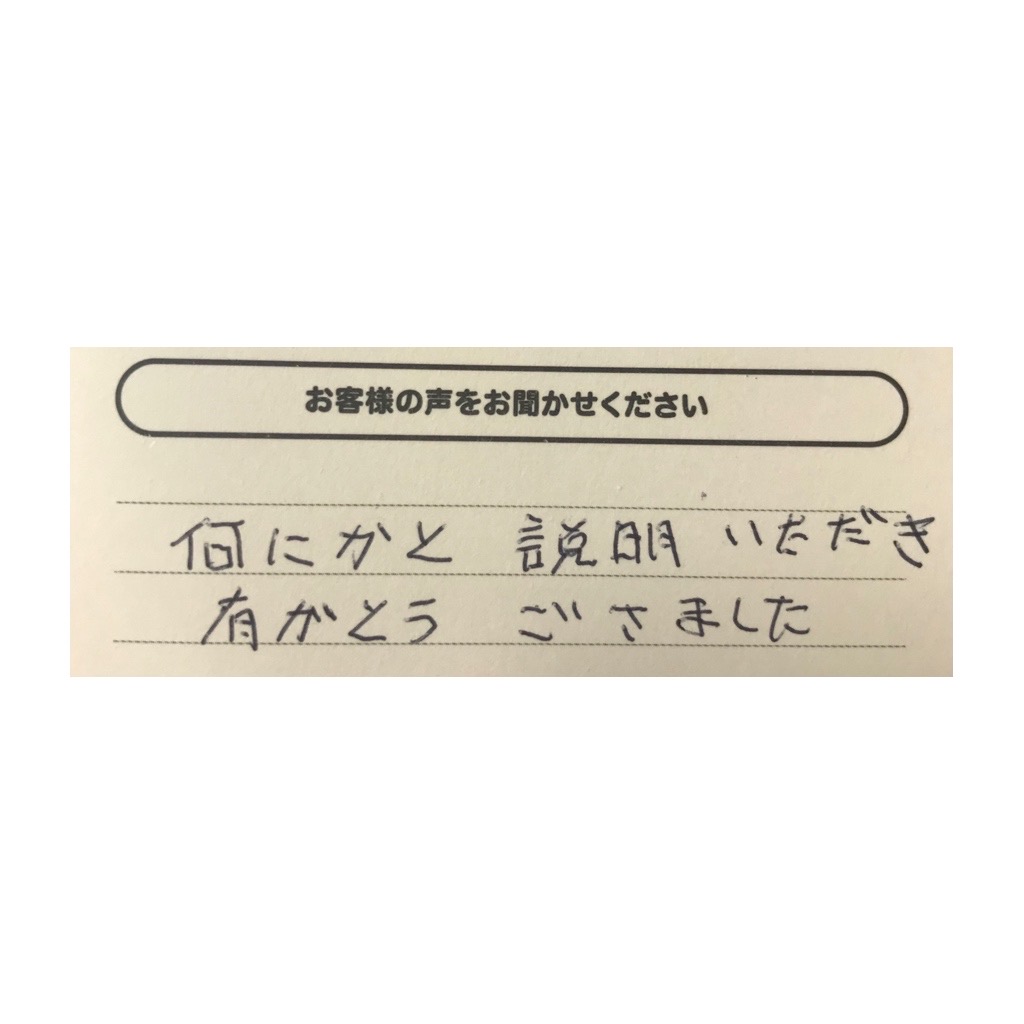 お客様の声をお聞かせください
何にかと 説明 いただき
有がとう ごさました